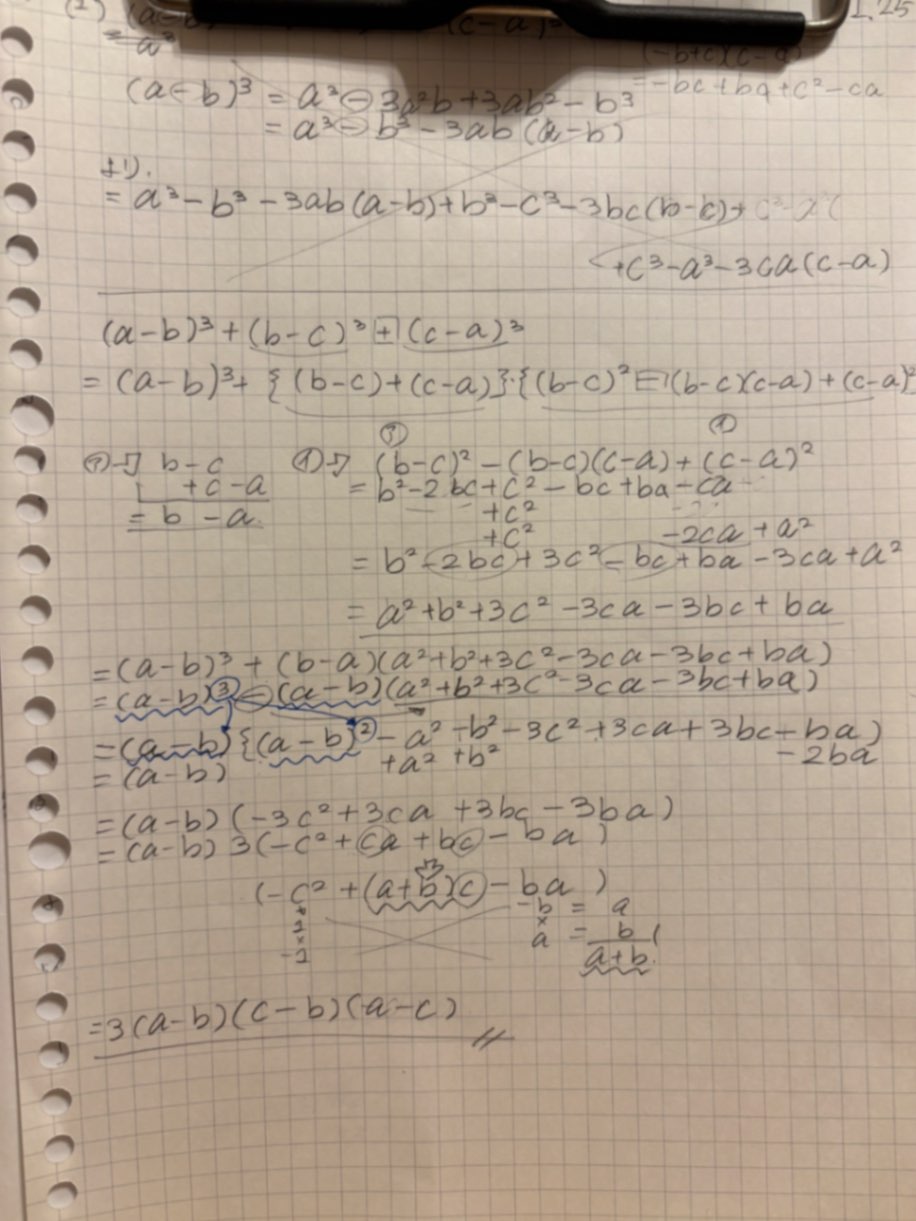 (2) (a-b)
= a³
(c-a)
1.25
(-b+c)(c-a)
= -bc+ba+c²-ca
(a-b)³ = a³-3a²b+3ab²-b³
= a³-b³-3ab(a-b)
より.
= a³-b³-3ab(a-b)+b³-c³-3bc(b-c)+c³-a³(
+c³-a³-3ca(c-a)
(a-b)³+(b-c)³+(c-a)³
= (a-b)³+{(b-c)+(c-a)}·{(b-c)²-(b-c)(c-a)+(c-a)²
㋐ ㋑
㋐→ b-c
+c-a
= b -a
㋑→ (b-c)²-(b-c)(c-a)+(c-a)²
= b²-2bc+c²-bc+ba-ca
+c²
+c² -2ca+a²
= b²-2bc+3c²-bc+ba-3ca+a²
= a²+b²+3c²-3ca-3bc+ba
=(a-b)³+(b-a)(a²+b²+3c²-3ca-3bc+ba)
=(a-b)³-(a-b)(a²+b²+3c²-3ca-3bc+ba)
=(a-b){(a-b)²-a²-b²-3c²+3ca+3bc-ba)
+a² +b² -2ba
=(a-b)
=(a-b)(-3c²+3ca+3bc-3ba)
=(a-b)3(-c²+ca+bc-ba)
(-c²+(a+b)c-ba)
-b = a
a = b
a+b
1
-1
=3(a-b)(c-b)(a-c)